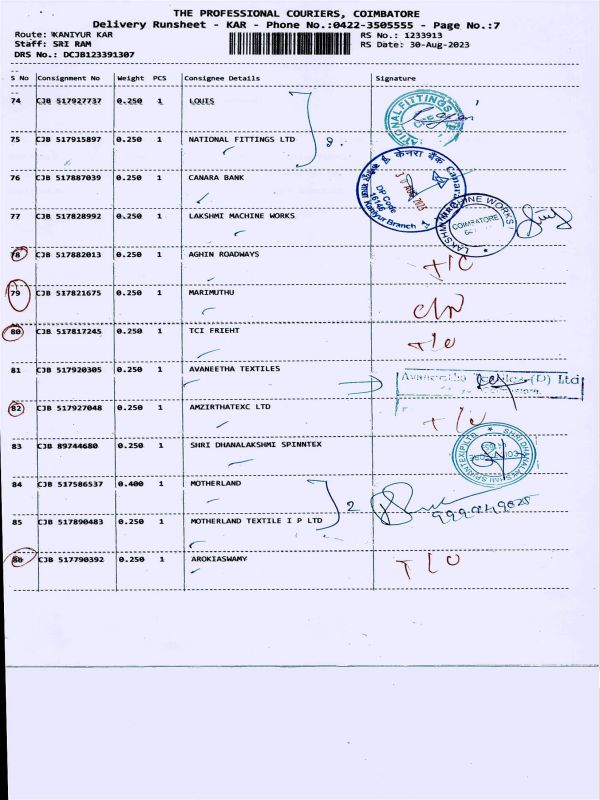 THE PROFESSIONAL COURIERS, COIMBATORE
Delivery Runsheet - KAR - Phone No.:0422-3505555 - Page No.:7
Route: KANIYUR KAR RS No.: 1233913
Staff: SRI RAM RS Date: 30-Aug-2023
DRS No.: DCJB123391307
S No Consignment No Weight PCS Consignee Details Signature
74 CJB 517927737 0.250 1 LOUIS
NATIONAL FITTINGS
75 CJB 517915897 0.250 1 NATIONAL FITTINGS LTD 2.
76 CJB 517887039 0.250 1 CANARA BANK
केनरा बैंक Canara
DP Code
16146
Kaniyur Branch
77 CJB 517828992 0.250 1 LAKSHMI MACHINE WORKS
LAKSHMI MACHINE WORKS
COIMBATORE
78 CJB 517882013 0.250 1 AGHIN ROADWAYS T/C
79 CJB 517821675 0.250 1 MARIMUTHU
80 CJB 517817245 0.250 1 TCI FRIEHT T/O
81 CJB 517920305 0.250 1 AVANEETHA TEXTILES
Avaneetha Textiles (P) Ltd
82 CJB 517927048 0.250 1 AMZIRTHATEXC LTD
83 CJB 89744680 0.250 1 SHRI DHANALAKSHMI SPINNTEX
SHRI DHANALAKSHMI SPINNTEX (P) LTD
84 CJB 517586537 0.400 1 MOTHERLAND 2
85 CJB 517890483 0.250 1 MOTHERLAND TEXTILE I P LTD
86 CJB 517790392 0.250 1 AROKIASWAMY T L O